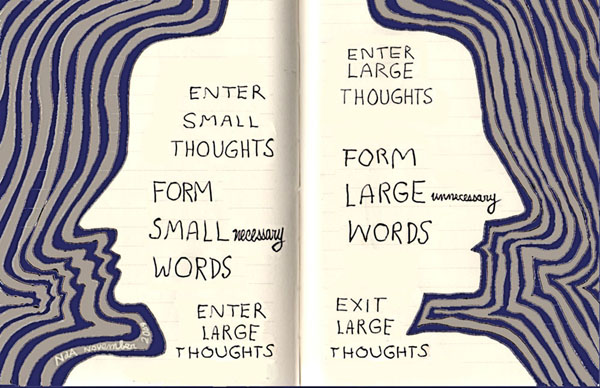 ENTER
SMALL
THOUGHTS
FORM
SMALL necessary
WORDS
ENTER
LARGE
THOUGHTS
NdA NOVEMBER
ENTER
LARGE
THOUGHTS
FORM
LARGE unnecessary
WORDS
EXIT
LARGE
THOUGHTS